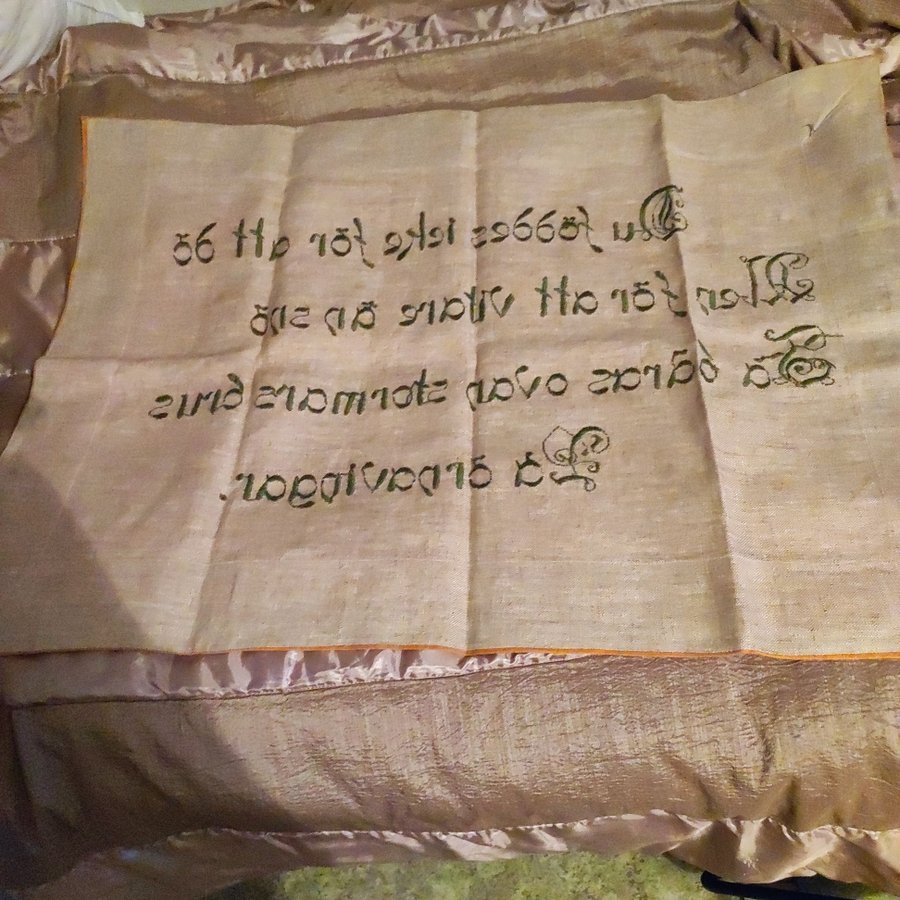 Du föddes icke för att dö
Men för att vitare än snö
Få bäras ovan stormars brus
På örnavingar.